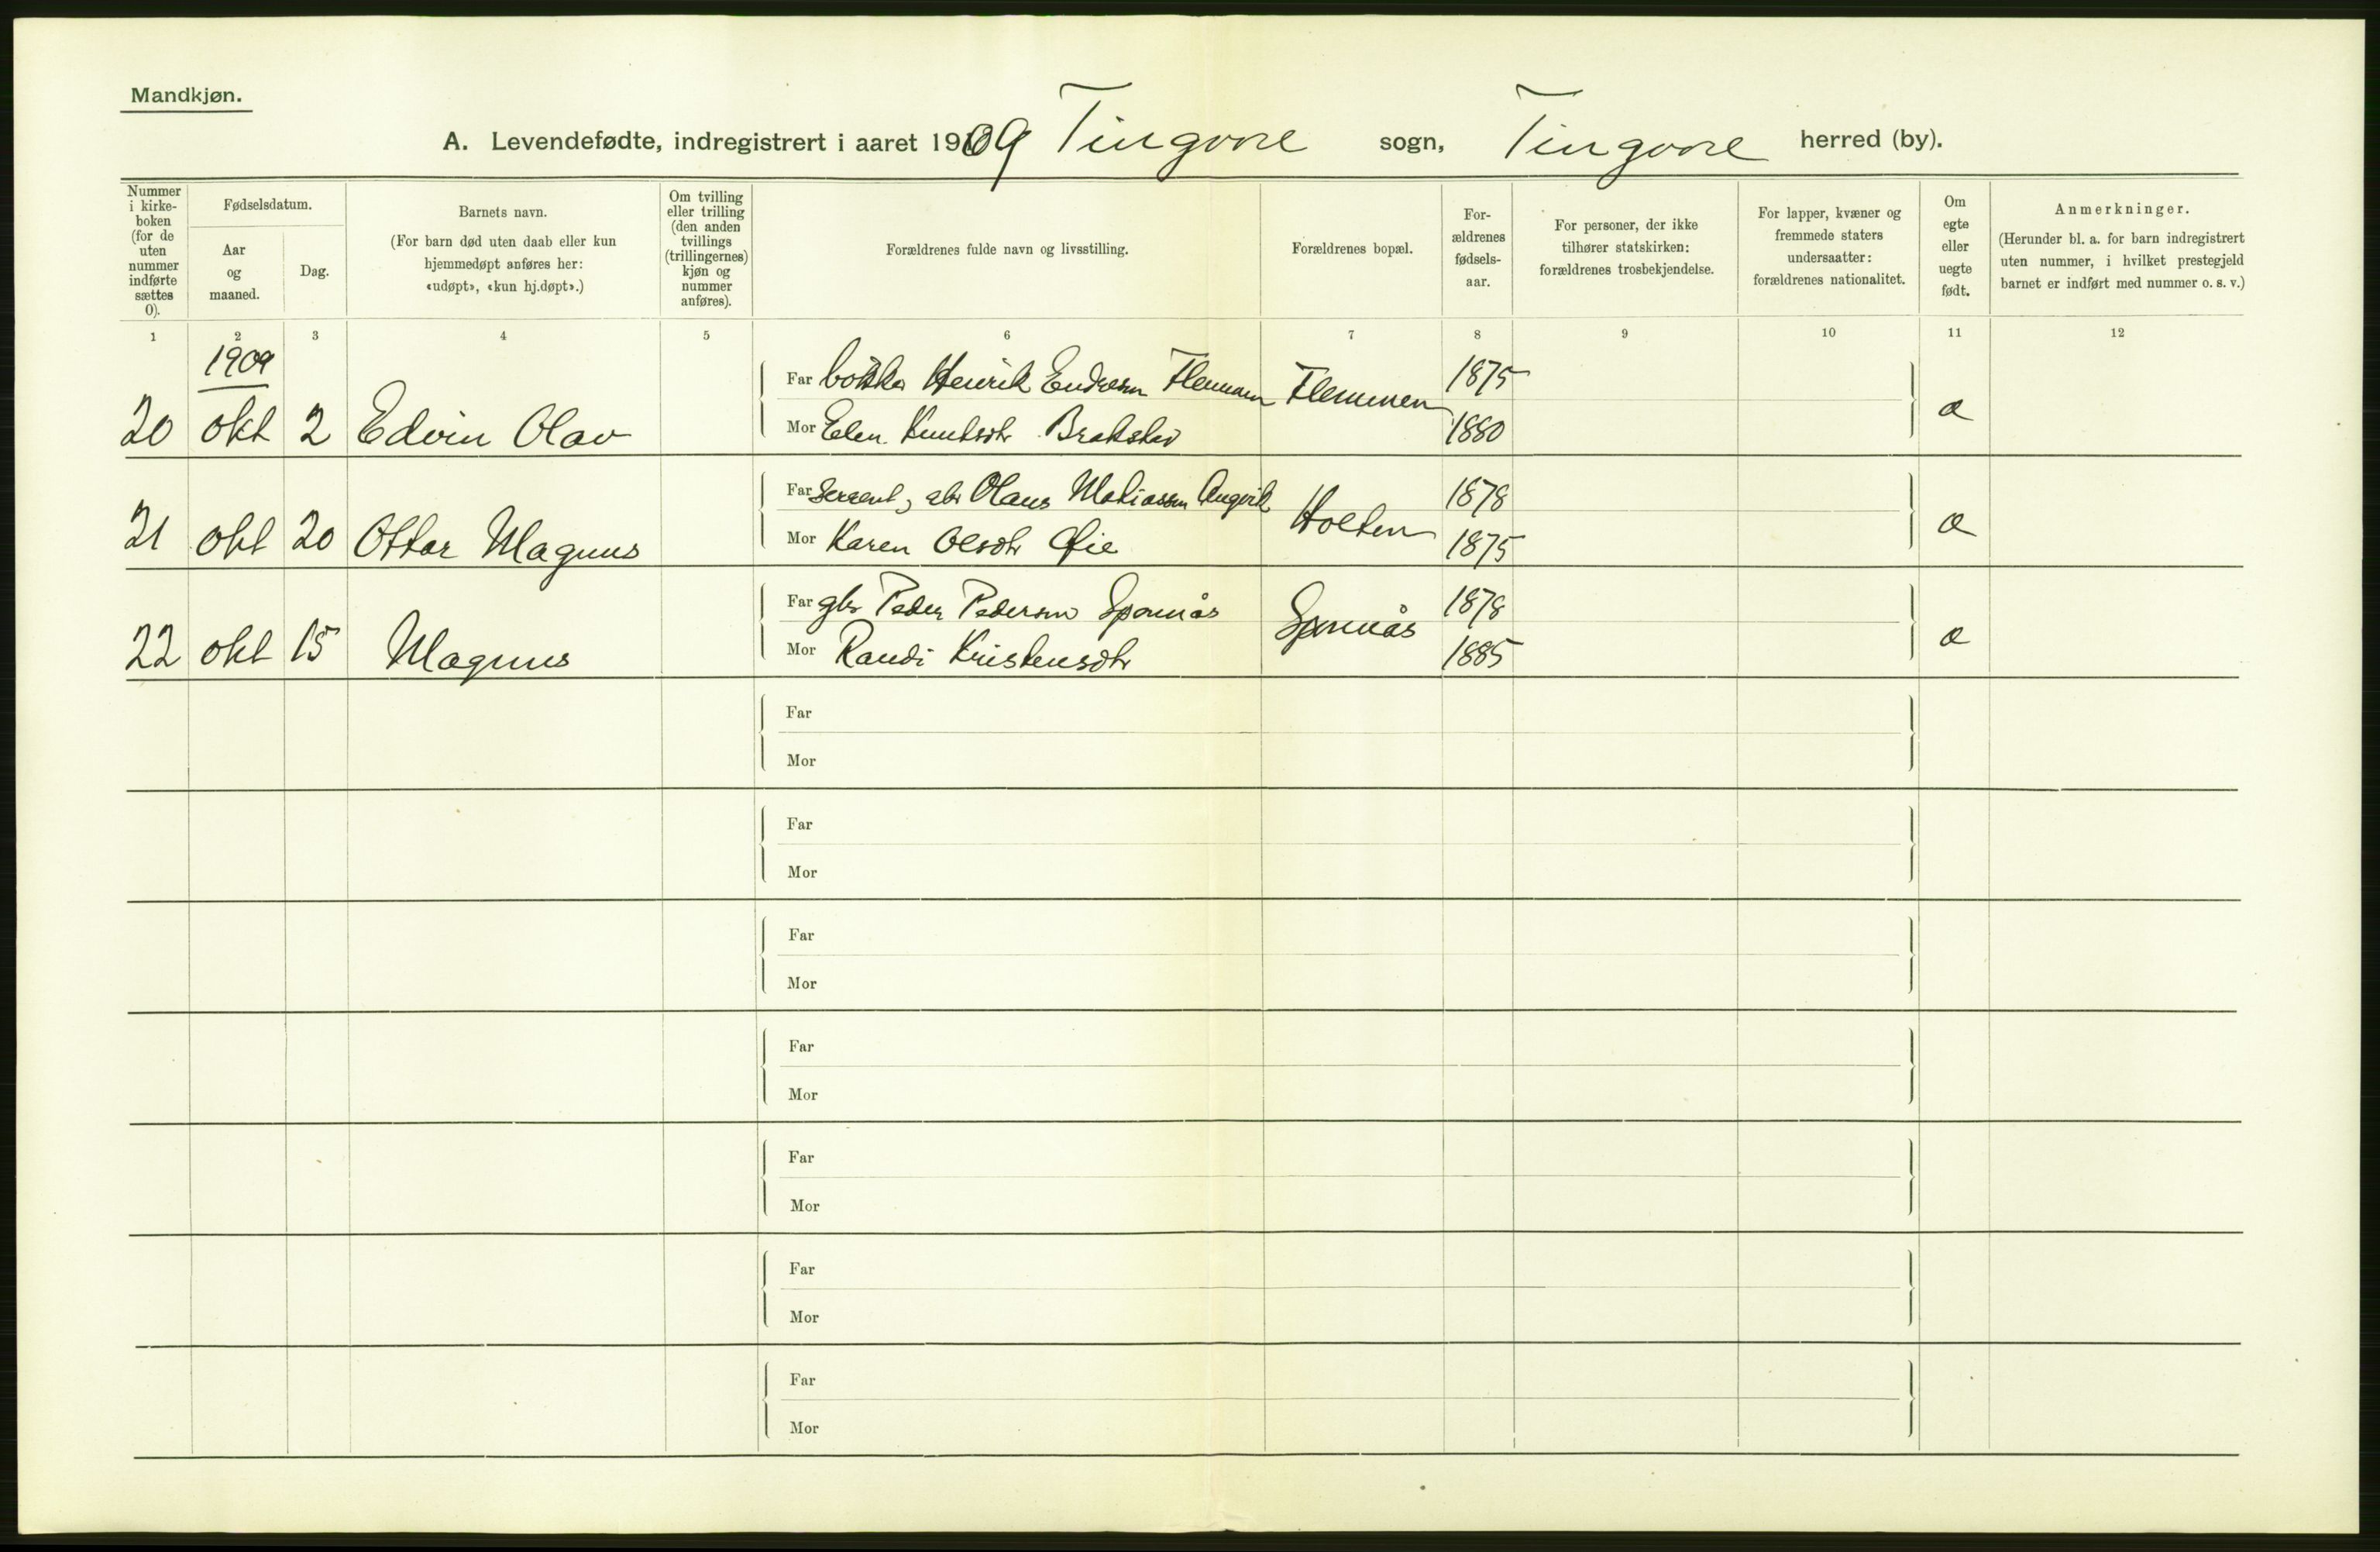 Mandkjøn.
A. Levendefødte, indregistrert i aaret 1909 Tingvoll sogn, Tingvoll herred (by).
Nummer i kirke-boken (for de uten nummer indførte sættes 0).
Fødselsdatum.
Aar og maaned.
Dag.
Barnets navn.
(For barn død uten daab eller kun hjemmedøpt anføres her: «udøpt», «kun hj.døpt».)
Om tvilling eller trilling (den anden tvillings (trillingernes) kjøn og nummer anføres).
Forældrenes fulde navn og livsstilling.
Forældrenes bopæl.
For-ældrenes fødsels-aar.
For personer, der ikke tilhører statskirken: forældrenes trosbekjendelse.
For lapper, kvæner og fremmede staters undersaatter: forældrenes nationalitet.
Om egte eller uegte født.
Anmerkninger.
(Herunder bl. a. for barn indregistrert uten nummer, i hvilket prestegjeld barnet er indført med nummer o. s. v.)
1 2 3 4 5 6 7 8 9 10 11 12
1909
Far Henrik Endresen Flemmen Flemmen 1875
20 okt 2 Edvin Olav Mor Elen Knutsdtr Brakstad 1880 æ
Far Sergent, Olaus Matiassen Angvik Holten 1878
21 okt 20 Ottar Magnus Mor Karen Olsdtr Øie 1875 æ
Far gbr Peder Pedersen Sponnås Sponnås 1878
22 okt 15 Magnus Mor Randi Kristensdtr 1885 æ
Far
Mor
Far
Mor
Far
Mor
Far
Mor
Far
Mor
Far
Mor
Far
Mor